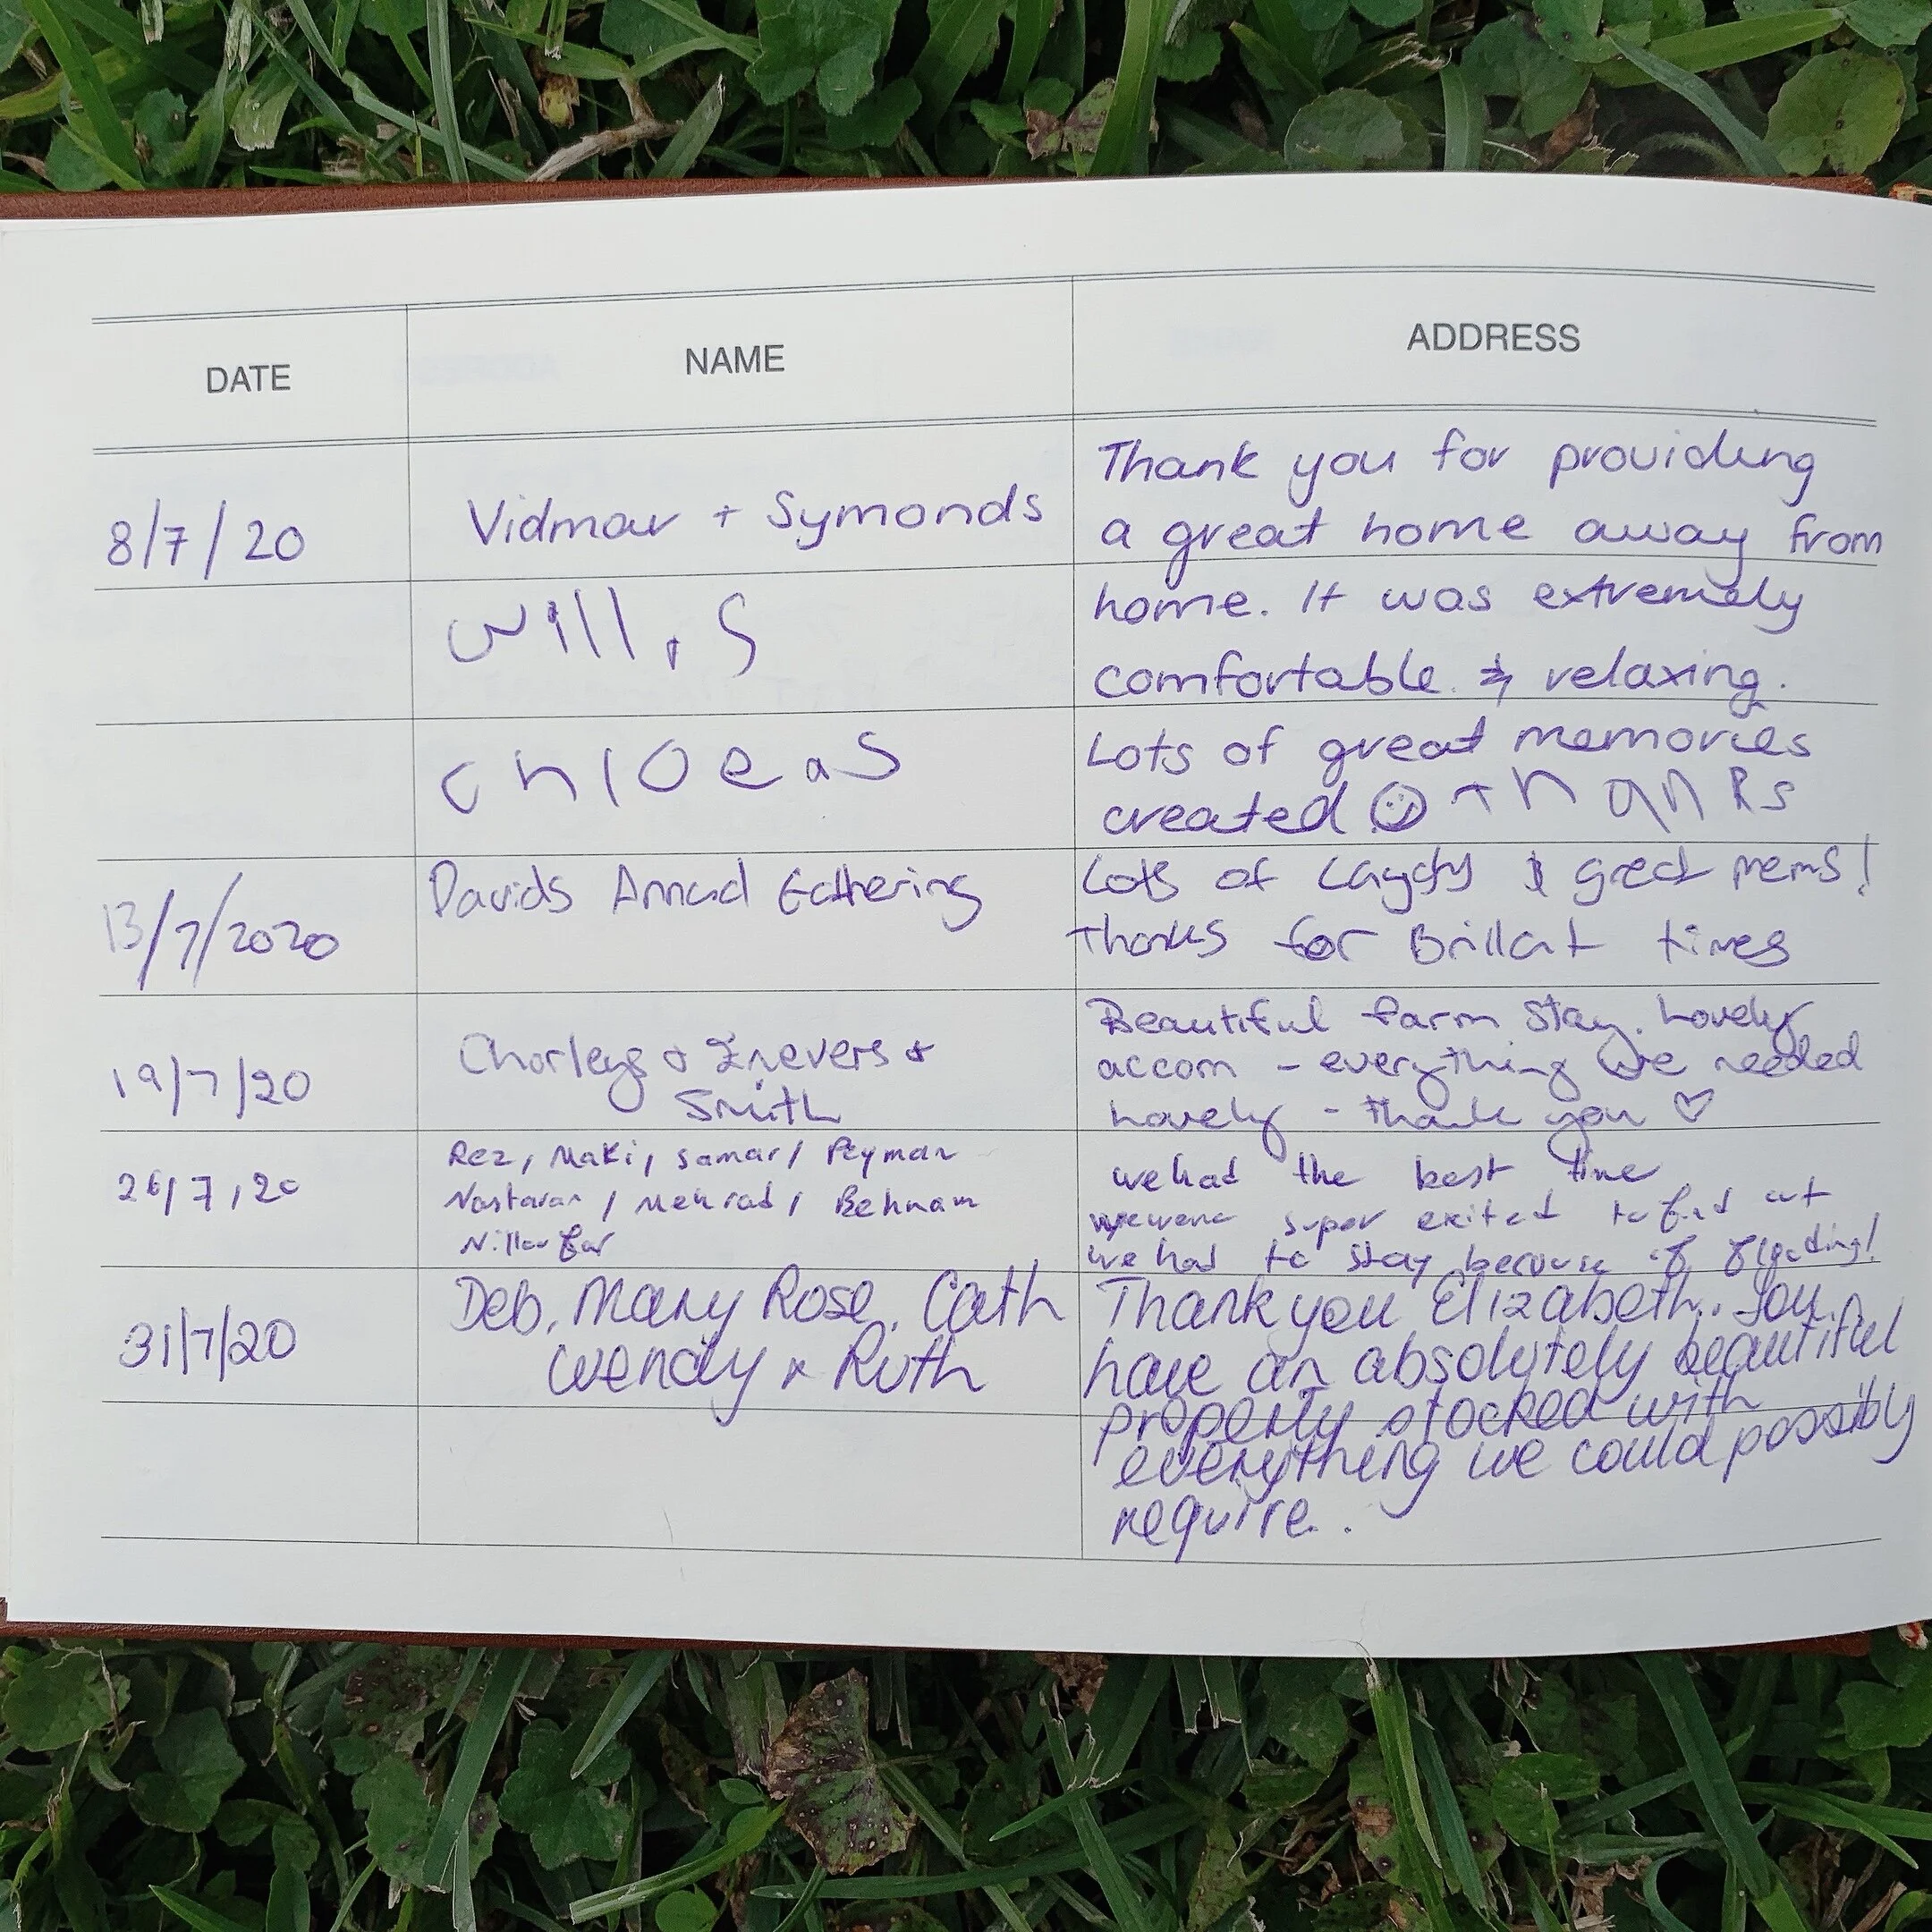 DATE NAME ADDRESS
8/7/20 Vidmar + Symonds Thank you for providing
a great home away from
will.S home. It was extremely
comfortable & relaxing.
chloe a S Lots of great memories
created ☺ Thanks
13/7/2020 Davids Annual Gathering Lots of Laughs & great mems!
Thanks for Brillant times
19/7/20 Chorleys & & Beautiful farm stay. Lovely
Smith accom - everything we needed
Lovely - thank you ♡
26/7/20 Rez, Maki, Samar, Peyman we had the best time
Nastaran, Mehrad, Behnam we were super exited to find out
Nilloufar we had to stay because of flooding!
31/7/20 Deb, Mary Rose, Cath Thank you Elizabeth.. You
Wendy & Ruth have an absolutely beautiful
property stocked with
everything we could possibly
require..